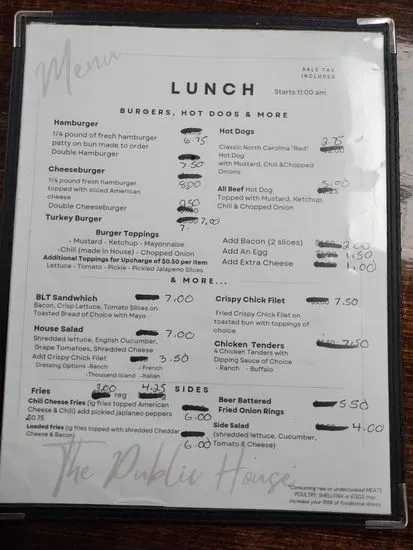 Menu
SALE TAX
INCLUDED
LUNCH
Starts 11:00 am
BURGERS, HOT DOGS & MORE
Hamburger
1/4 pound of fresh hamburger
patty on bun made to order 6.75
Double Hamburger 7.50
Cheeseburger
1/4 pound fresh hamburger
topped with sliced American
cheese
Double Cheeseburger
Turkey Burger 7.00
Burger Toppings
- Mustard - Ketchup - Mayonnaise
-Chili (made in House) - Chopped Onion
Additional Toppings for Upcharge of $0.50 per item
Lettuce - Tomato - Pickle - Pickled Jalapeno Slices
Hot Dogs
Classic North Carolina "Red" 2.75
Hot Dog
with Mustard, Chili &Chopped
Onions
All Beef Hot Dog 3.00
Topped with Mustard, Ketchup,
Chili & Chopped Onion
Add Bacon (2 slices) 2.00
Add An Egg 1.50
Add Extra Cheese 1.00
& MORE...
BLT Sandwhich 7.00
Bacon, Crisp Lettuce, Tomato Slices on
Toasted Bread of Choice with Mayo
House Salad 7.00
Shredded lettuce, English Cucumber,
Grape Tomatoes, Shredded Cheese
Add Crispy Chick Filet 3.50
Dressing Options -Ranch - French
-Thousand Island -Italian
Crispy Chick Filet 7.50
Fried Crispy Chick Filet on
toasted bun with toppings of
choice
Chicken Tenders 7.50
4 Chicken Tenders with
Dipping Sauce of Choice
- Ranch - Buffalo
SIDES
Fries 3.00 reg 4.25
Chili Cheese Fries (lg fries topped American
Cheese & Chili) add pickled japlaneo peppers
$0.75 6.00
Loaded Fries (lg fries topped with shredded Cheddar
Cheese & Bacon) 6.00
Beer Battered 5.50
Fried Onion Rings
Side Salad 4.00
(shredded lettuce, Cucumber,
Tomato & Cheese)
The Public House
*Consuming raw or undercooked MEATS
POULTRY, SHELLFISH or EGGS may
increase your RISK of foodborne illness